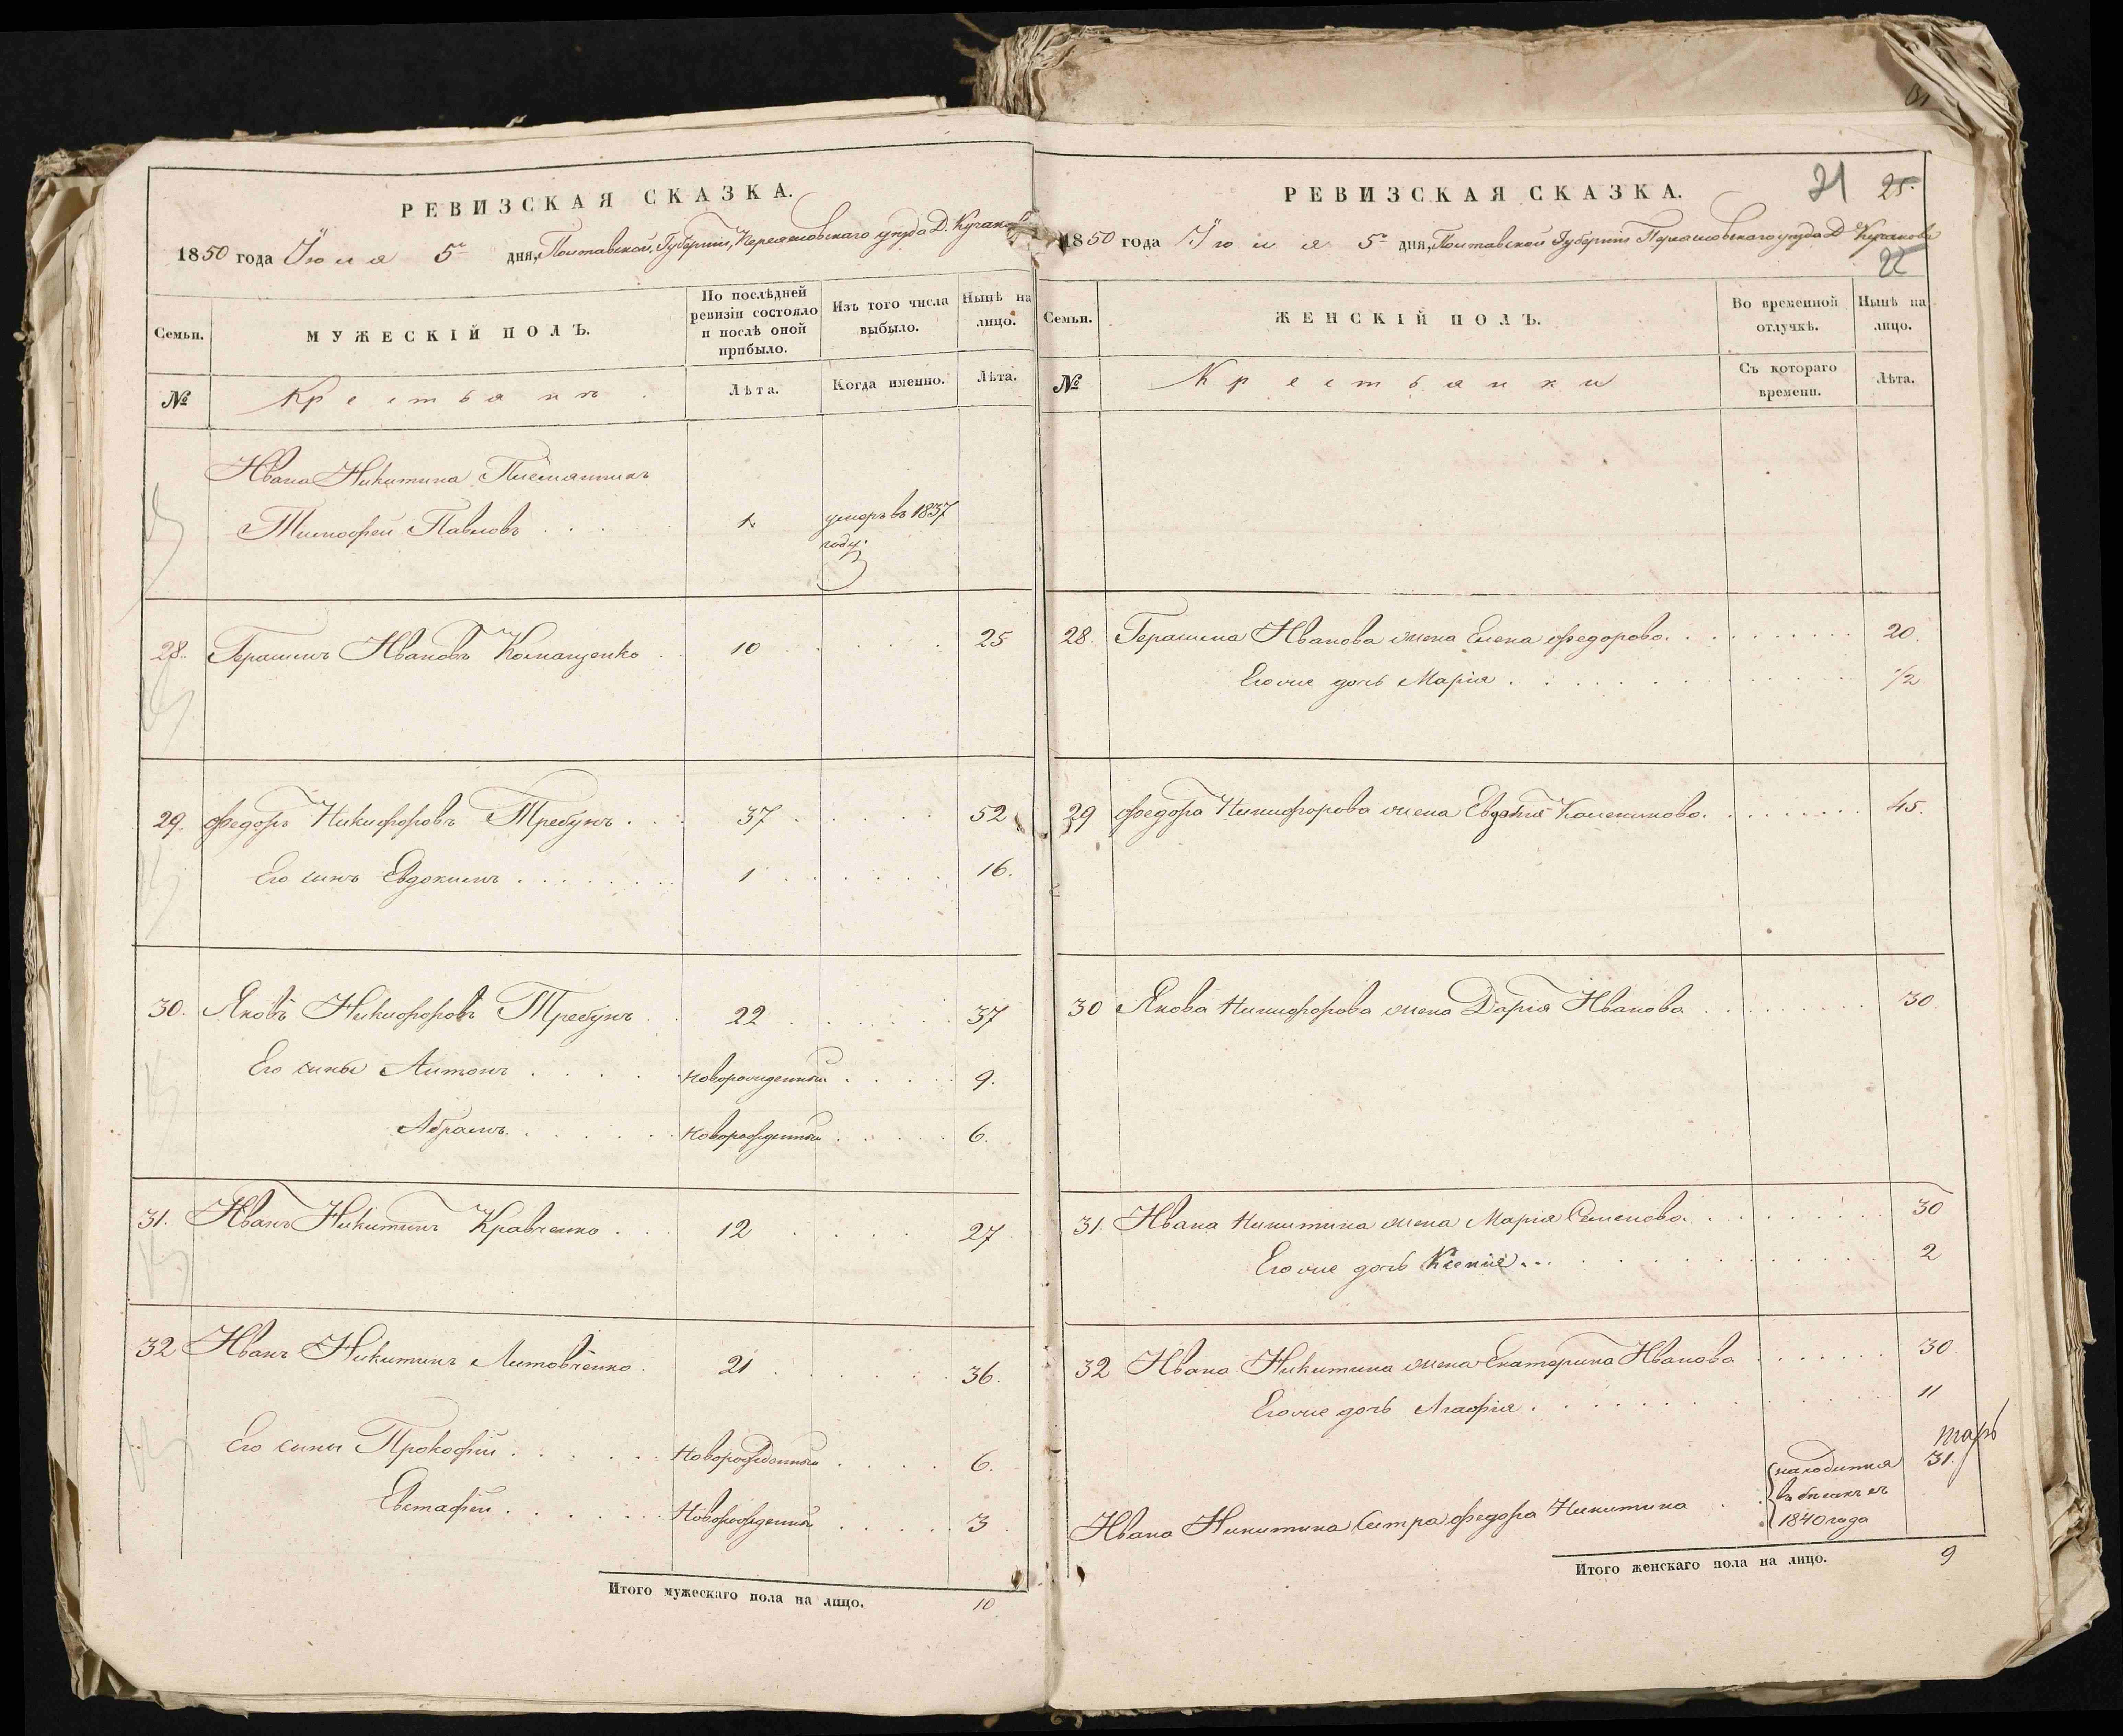 РЕВИЗСКАЯ СКАЗКА.
1850 года Іюня 5 дня, Полтавской Губерніи, Переяславскаго уѣзда Д. Кучакова
Семьи.
МУЖЕСКІЙ ПОЛЪ.
По послѣдней ревизіи состояло и послѣ оной прибыло.
Изъ того числа выбыло.
Нынѣ на лицо.
№
Крестьянъ
Лѣта.
Когда именно.
Лѣта.
Ивана Никитина Племянникъ
Тимофей Павловъ . . . 1. умеръ въ 1837
году.
28. Герасимъ Ивановъ Комащенко . . 10 . . . . . 25
29. Федоръ Никифоровъ Требунъ . . . 37 . . . . . 52
Его сынъ Евдокимъ . . . . . . . 1 . . . . . . 16.
30. Яковъ Никифоровъ Требунъ . . 22 . . . . . . 37
Его сыны Антонъ . . . . . новорожденный . . . . 9.
Абрамъ . . . . . . новорожденный . . . . 6.
31. Иванъ Никитинъ Кравченко . . . 12 . . . . 27
32 Иванъ Никитинъ Литовченко . 21 . . . . . . 36.
Его сыны Прокофій . . . . . . Новорожденный . . . . 6.
Евстафій . . . . . . Новорожденный . . . . 3
Итого мужескаго пола на лицо. 10
РЕВИЗСКАЯ СКАЗКА.
21 25.
1850 года Іюня 5 дня, Полтавской Губерніи Переяславскаго уѣзда Д Кучакова
22
Семьи.
ЖЕНСКІЙ ПОЛЪ.
Во временной отлучкѣ.
Нынѣ на лицо.
№
Крестьянки
Съ котораго времени.
Лѣта.
28. Герасима Иванова жена Елена Федорова . . . . . . . . . 20.
Его же дочь Марія . . . . . . . . . . . 1/2
29 Федора Никифорова жена Евдокія Колесникова . . . . . . . . 45.
30 Якова Никифорова жена Дарія Иванова . . . . . . . . 30.
31. Ивана Никитина жена Марія Семенова . . . . . . . . . 30
Его же дочь Ксенія . . . . . . . . . . . . 2
32 Ивана Никитина жена Екатерина Иванова . . . . . . . 30
Его же дочь Агафія . . . . . . . . . . . . 11
Ивана Никитина Сестра Федора Никитина . . находится
въ бегахъ съ
1840 года
31.
Итого женскаго пола на лицо. 9